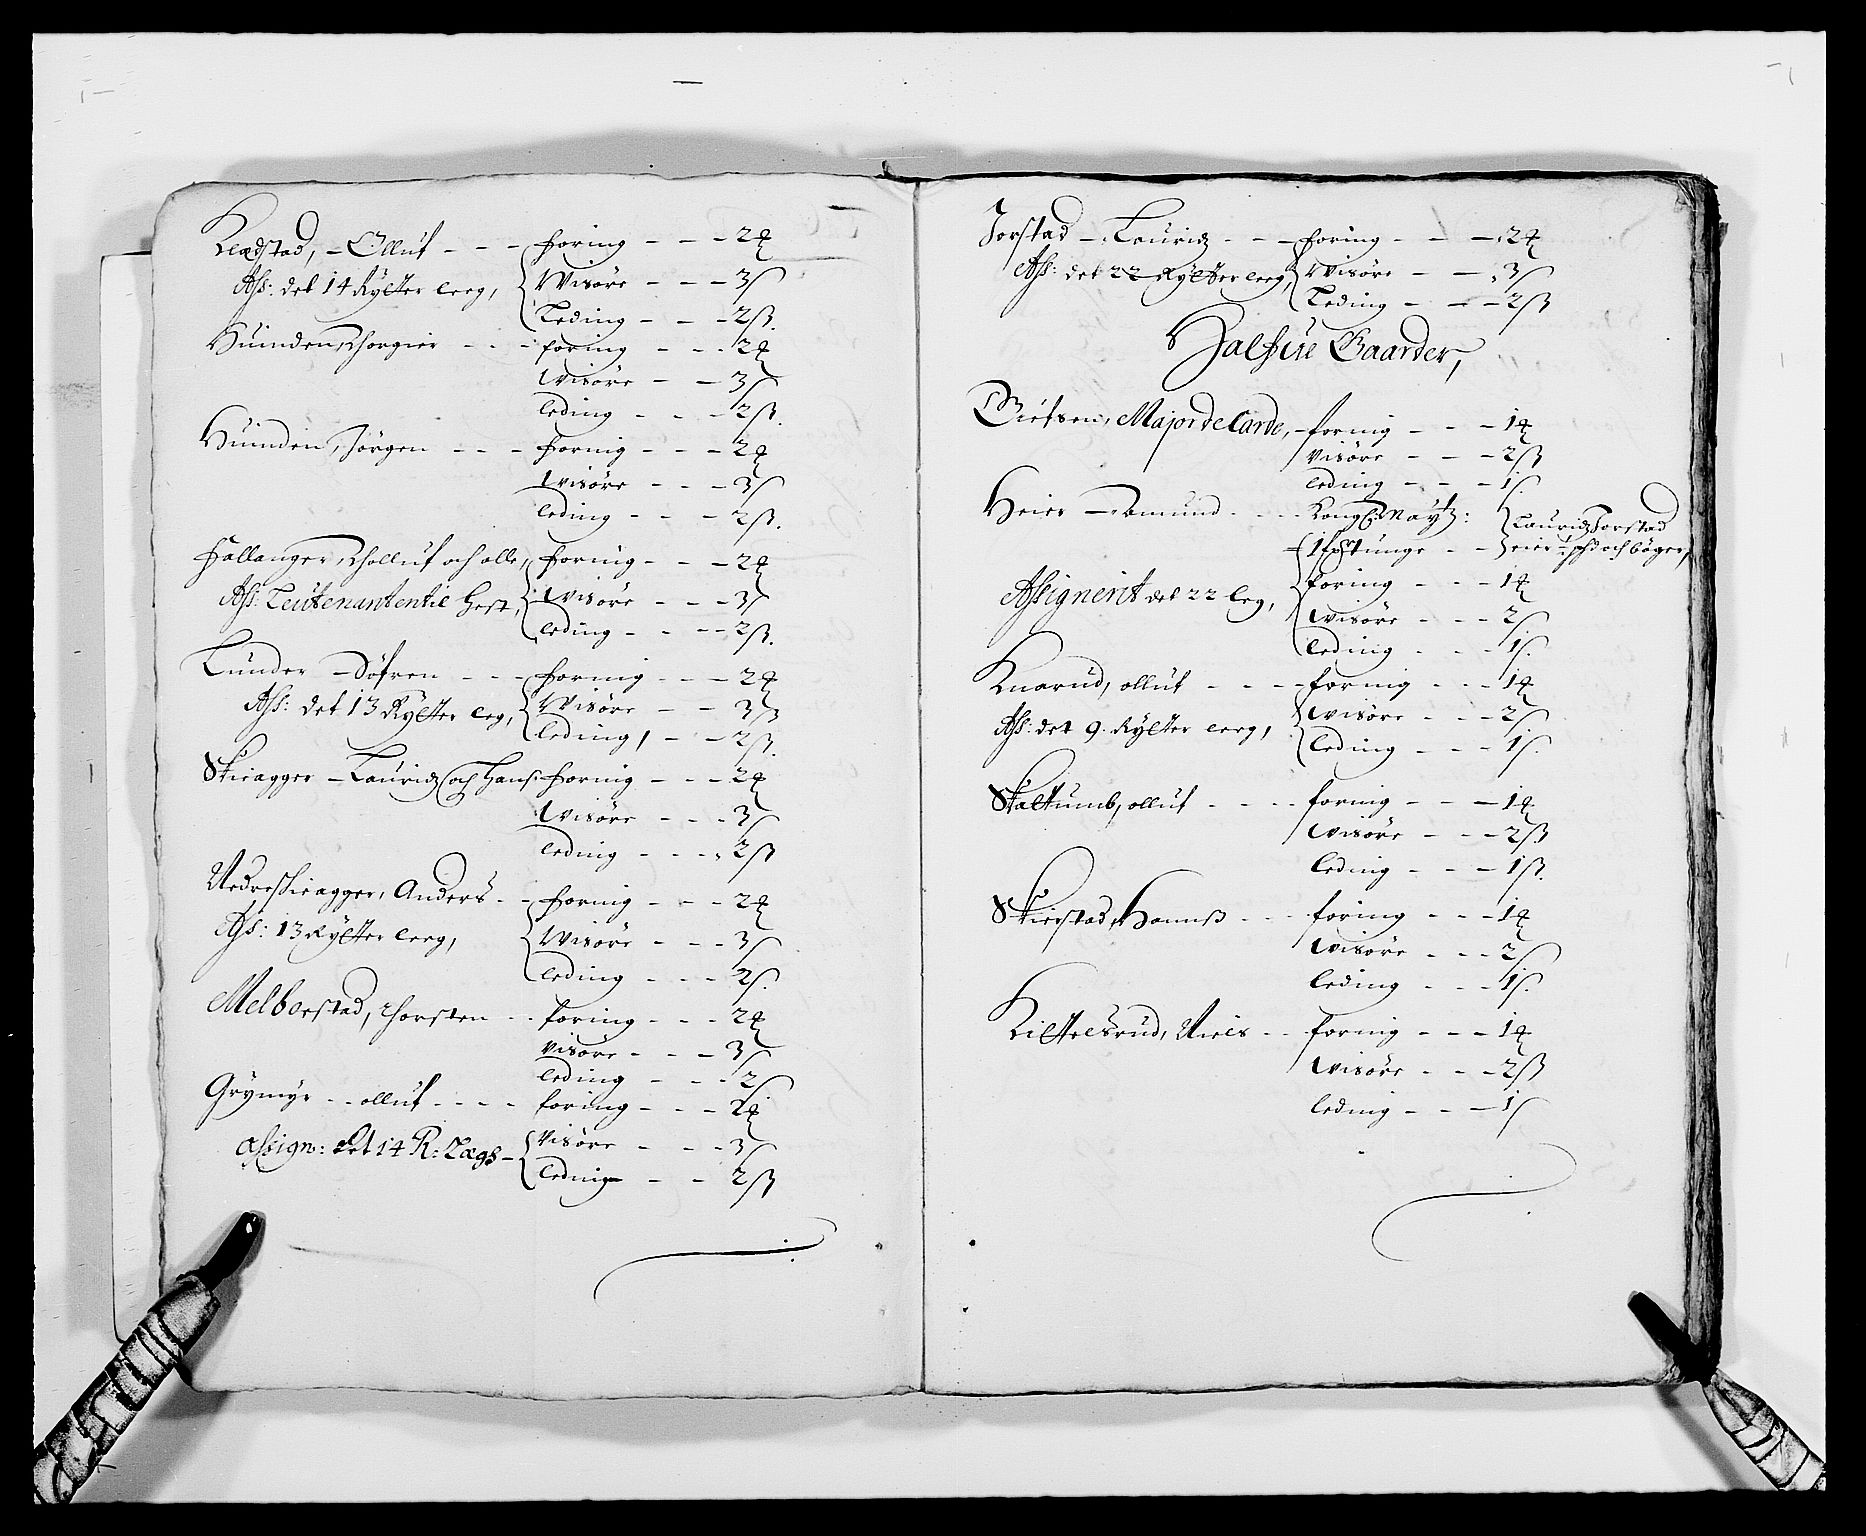 Klædstad, - Olluf - - - foring - - - 2 ₰
Ass: det 14 Rytter leeg, Visöre - - - 3 ß
Leding - - - 2 ß.
Huinden, Thorgier - - - foring - - - 2 ₰
Wisöre - - 3 ß
leding - - - 2 ß.
Huinden, Jörgen - - - foring - - - 2 ₰
Wisöre - - - 3 ß
leding - - - 2 ß.
Fallanger, Tholluf och olle, foring - - - 2 ₰
Ass: Leutenanten til hest, Wisöre - - - 3 ß
leding - - - 2 ß.
Lunder - Söfren - - - foring - - - 2 ₰
Ass: det 13 Rytter leg, Wisöre - - 3 ß
leding, - - - 2 ß.
Skiagger - Lauridz och Hans foring - - - 2 ₰
Wisöre - - - 3 ß
leding - - - 2 ß
Nedreskieagger, Anders - - foring - - - 2 ₰
Ass: 13 Rytter leeg, Wisöre - - - 3 ß
leding - - - 2 ß.
Melborstad, Thorsten - - foring - - - 2 ₰
Visöre - - - 3 ß
leding - - - 2 ß
Grymyr - - olluf - - - - foring - - - 2 ₰
Assign: det 14 R: Lægs - Visöre - - - 3 ß
leding - - - 2 ß
Jorstad - Lauridz - - - foring - - - 2 ₰
Ass: det 22 Rytter leeg, Wisöre - - 3 ß
Leding - - - 2 ß
Halfue Gaarder,
Major de Carde, - foring - - - 1 ₰
Visöre - - - 2 ß
leding - - - 1 ß.
Heier - Amund - - - - Kongl: Maytz: Lauridz Jorstad
1 fxrtunge - - eier och böger,
foring - - - 1 ₰
Assignerit det 22 leg, Wisöre - - - 2 ß
leding - - - 1 ß.
Knarud, olluf - - - - foring - - - 1 ₰
Ass: det 9. Rytter leeg, Wisöre - - - 2 ß
leding - - - 1 ß.
Skaltumb, olluf - - - - foring - - - 1 ₰
Wisöre - - - 2 ß
leding - - - 1 ß.
Skierstad, Hannß - - - foring - - - 1 ₰
Wisöre - - - 2 ß
leding - - - 1 ß.
Kittelsrud, Niels - - foring - - - 1 ₰
Wisöre - - - 2 ß
leding - - - 1 ß